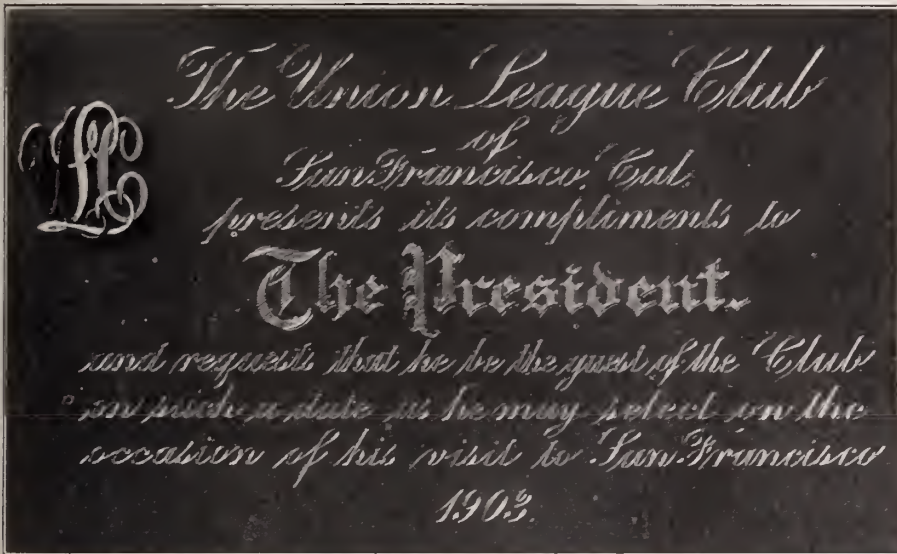 The Union League Club
of
San Francisco, Cal.
presents its compliments to
The President.
and requests that he be the guest of the Club
on such a date as he may select on the
occasion of his visit to San Francisco
1903.